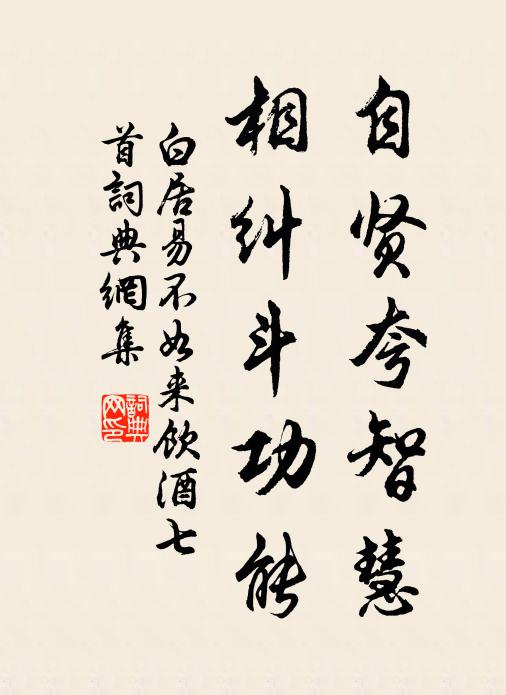 自贤夸智慧
相纠斗功能
白居易不如来饮酒七
首詞典網集
詞典
网印